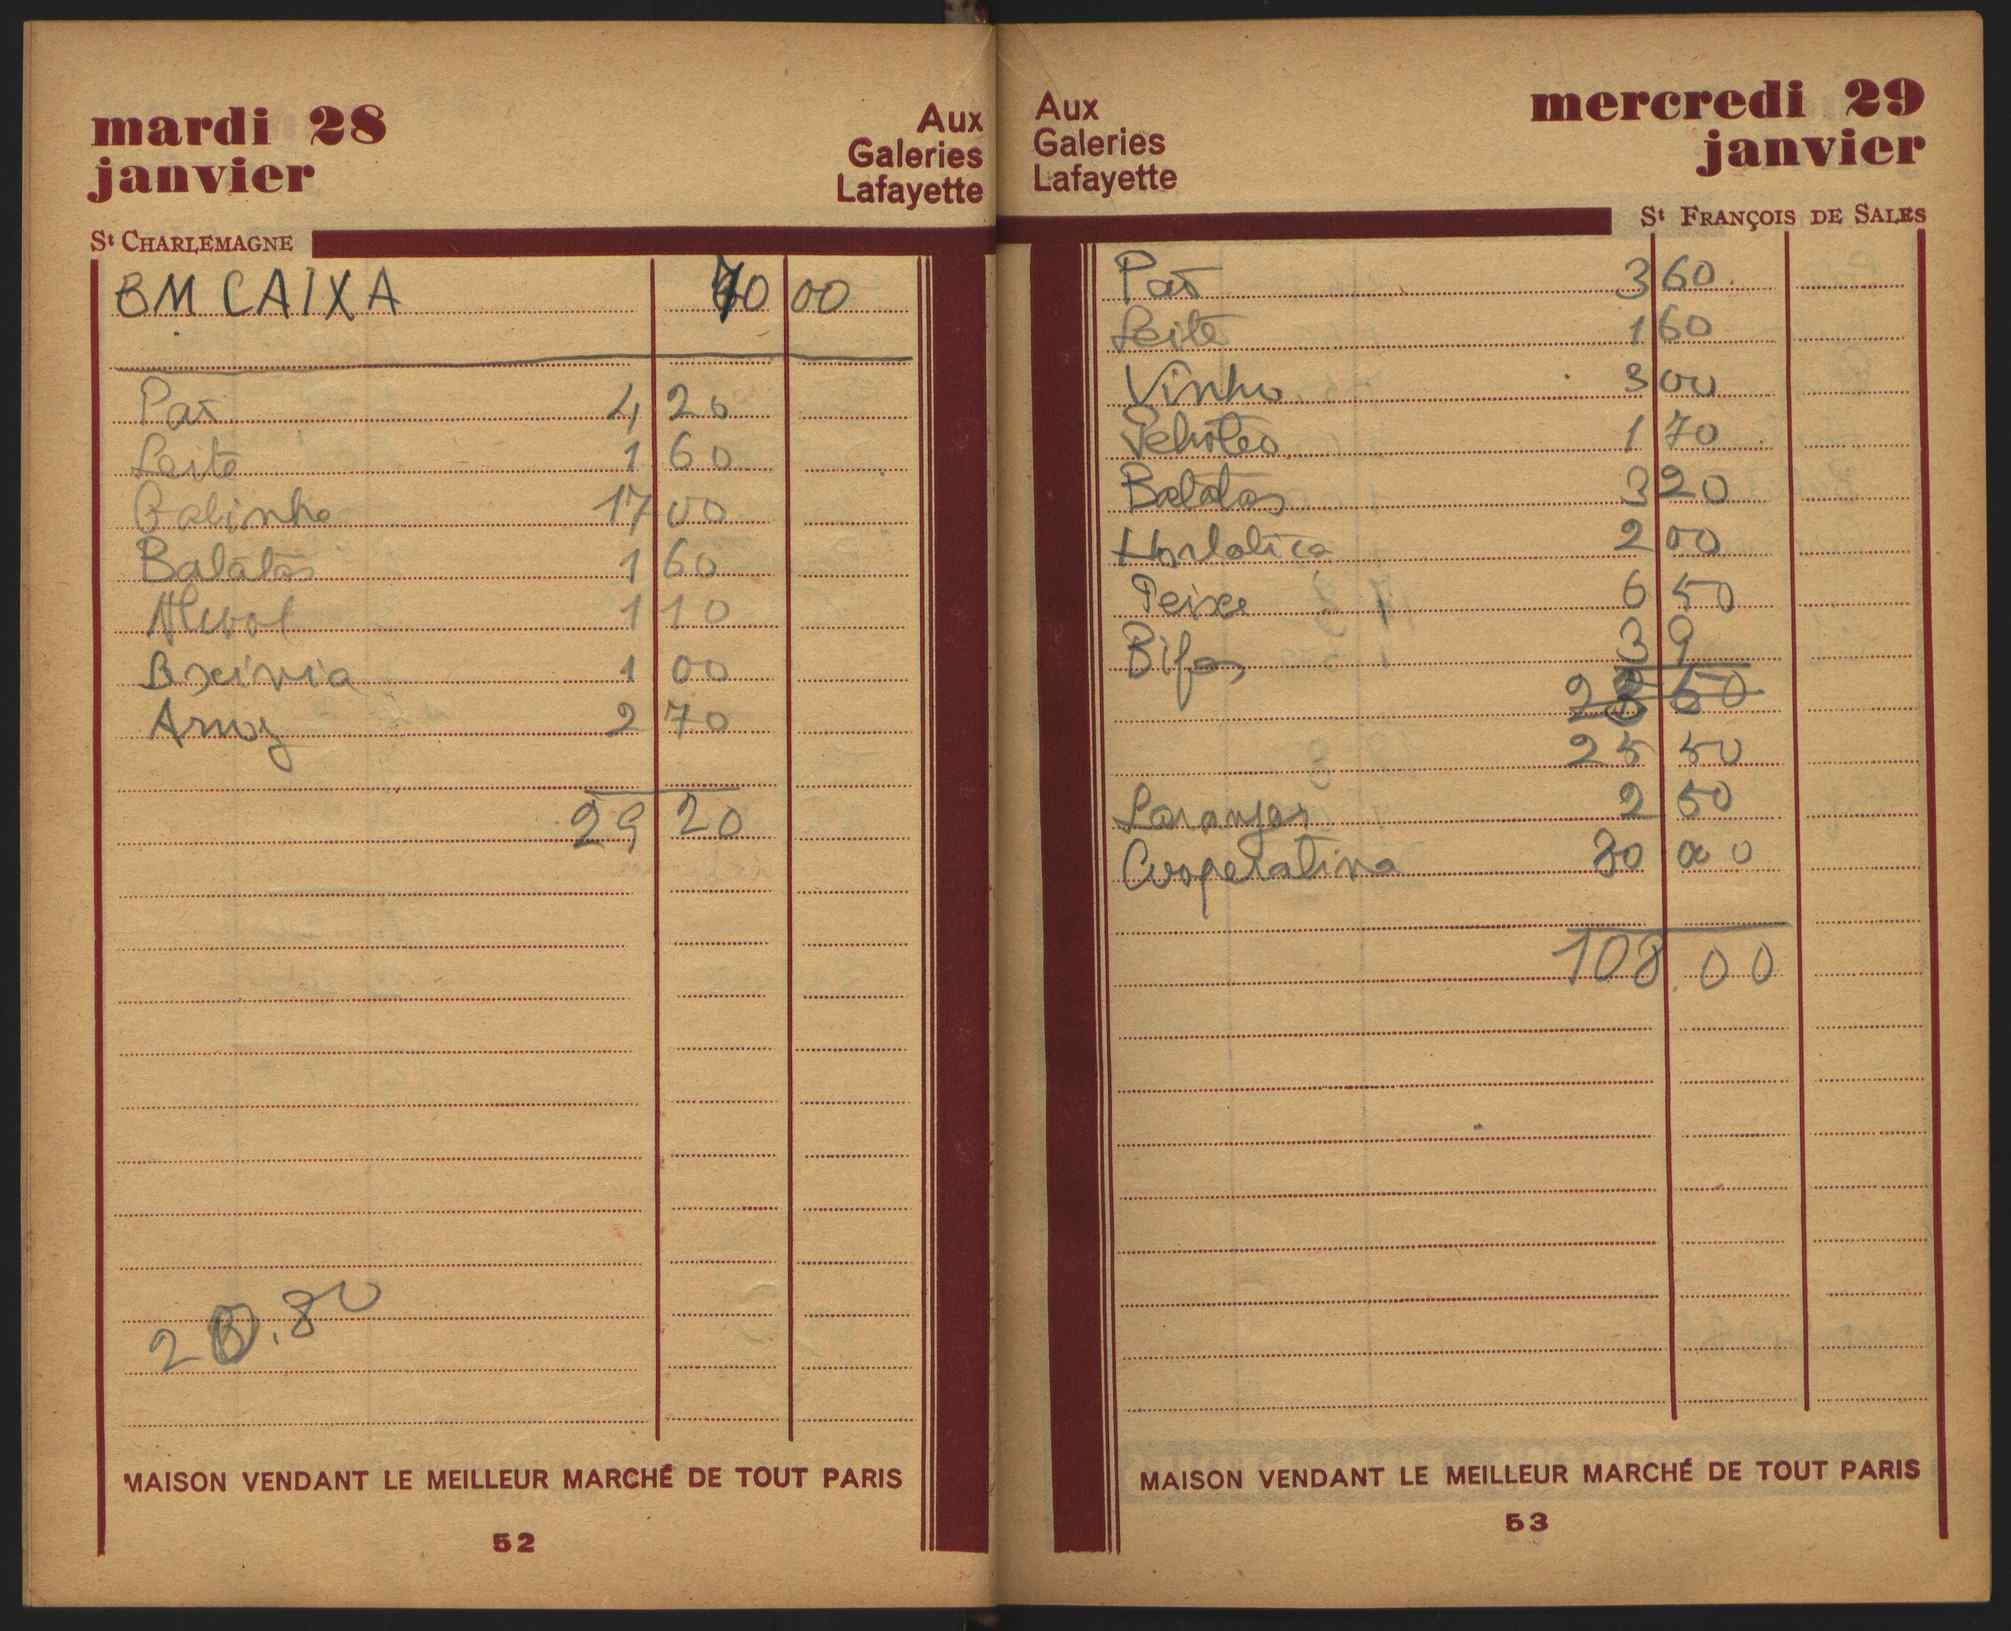 mardi 28
janvier
Aux
Galeries
Lafayette
St CHARLEMAGNE
BM CAIXA 70 00
Pão 4 20
Leite 1 60
Galinha 17 00
Batatas 1 60
Alcool 1 10
Lixivia 1 00
Arroz 2 70
29 20
20.80
MAISON VENDANT LE MEILLEUR MARCHÉ DE TOUT PARIS
52
Aux
Galeries
Lafayette
mercredi 29
janvier
St FRANÇOIS DE SALES
Pão 3 60
Leite 1 60
Vinho 3 00
Petroleo 1 70
Batatas 3 20
Hortaliça 2 00
Peixe 6 50
Bifes 3 9
25 50
Laranjas 2 50
Cooperativa 80 00
108.00
MAISON VENDANT LE MEILLEUR MARCHÉ DE TOUT PARIS
53